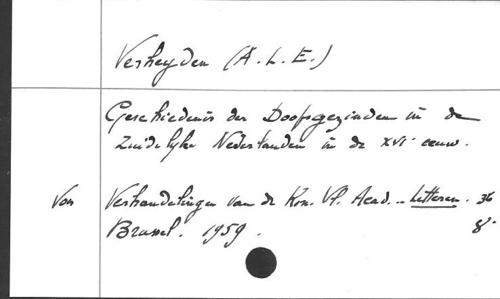 Verheyden (A. L. E.)
Geschiedenis der Doopsgezinden in de
Zuidelijke Nederlanden in de XVIe eeuw.
Von Verhandelingen van de Kon. Vl. Acad. - Letteren. 36
Brussel. 1959. 8°.